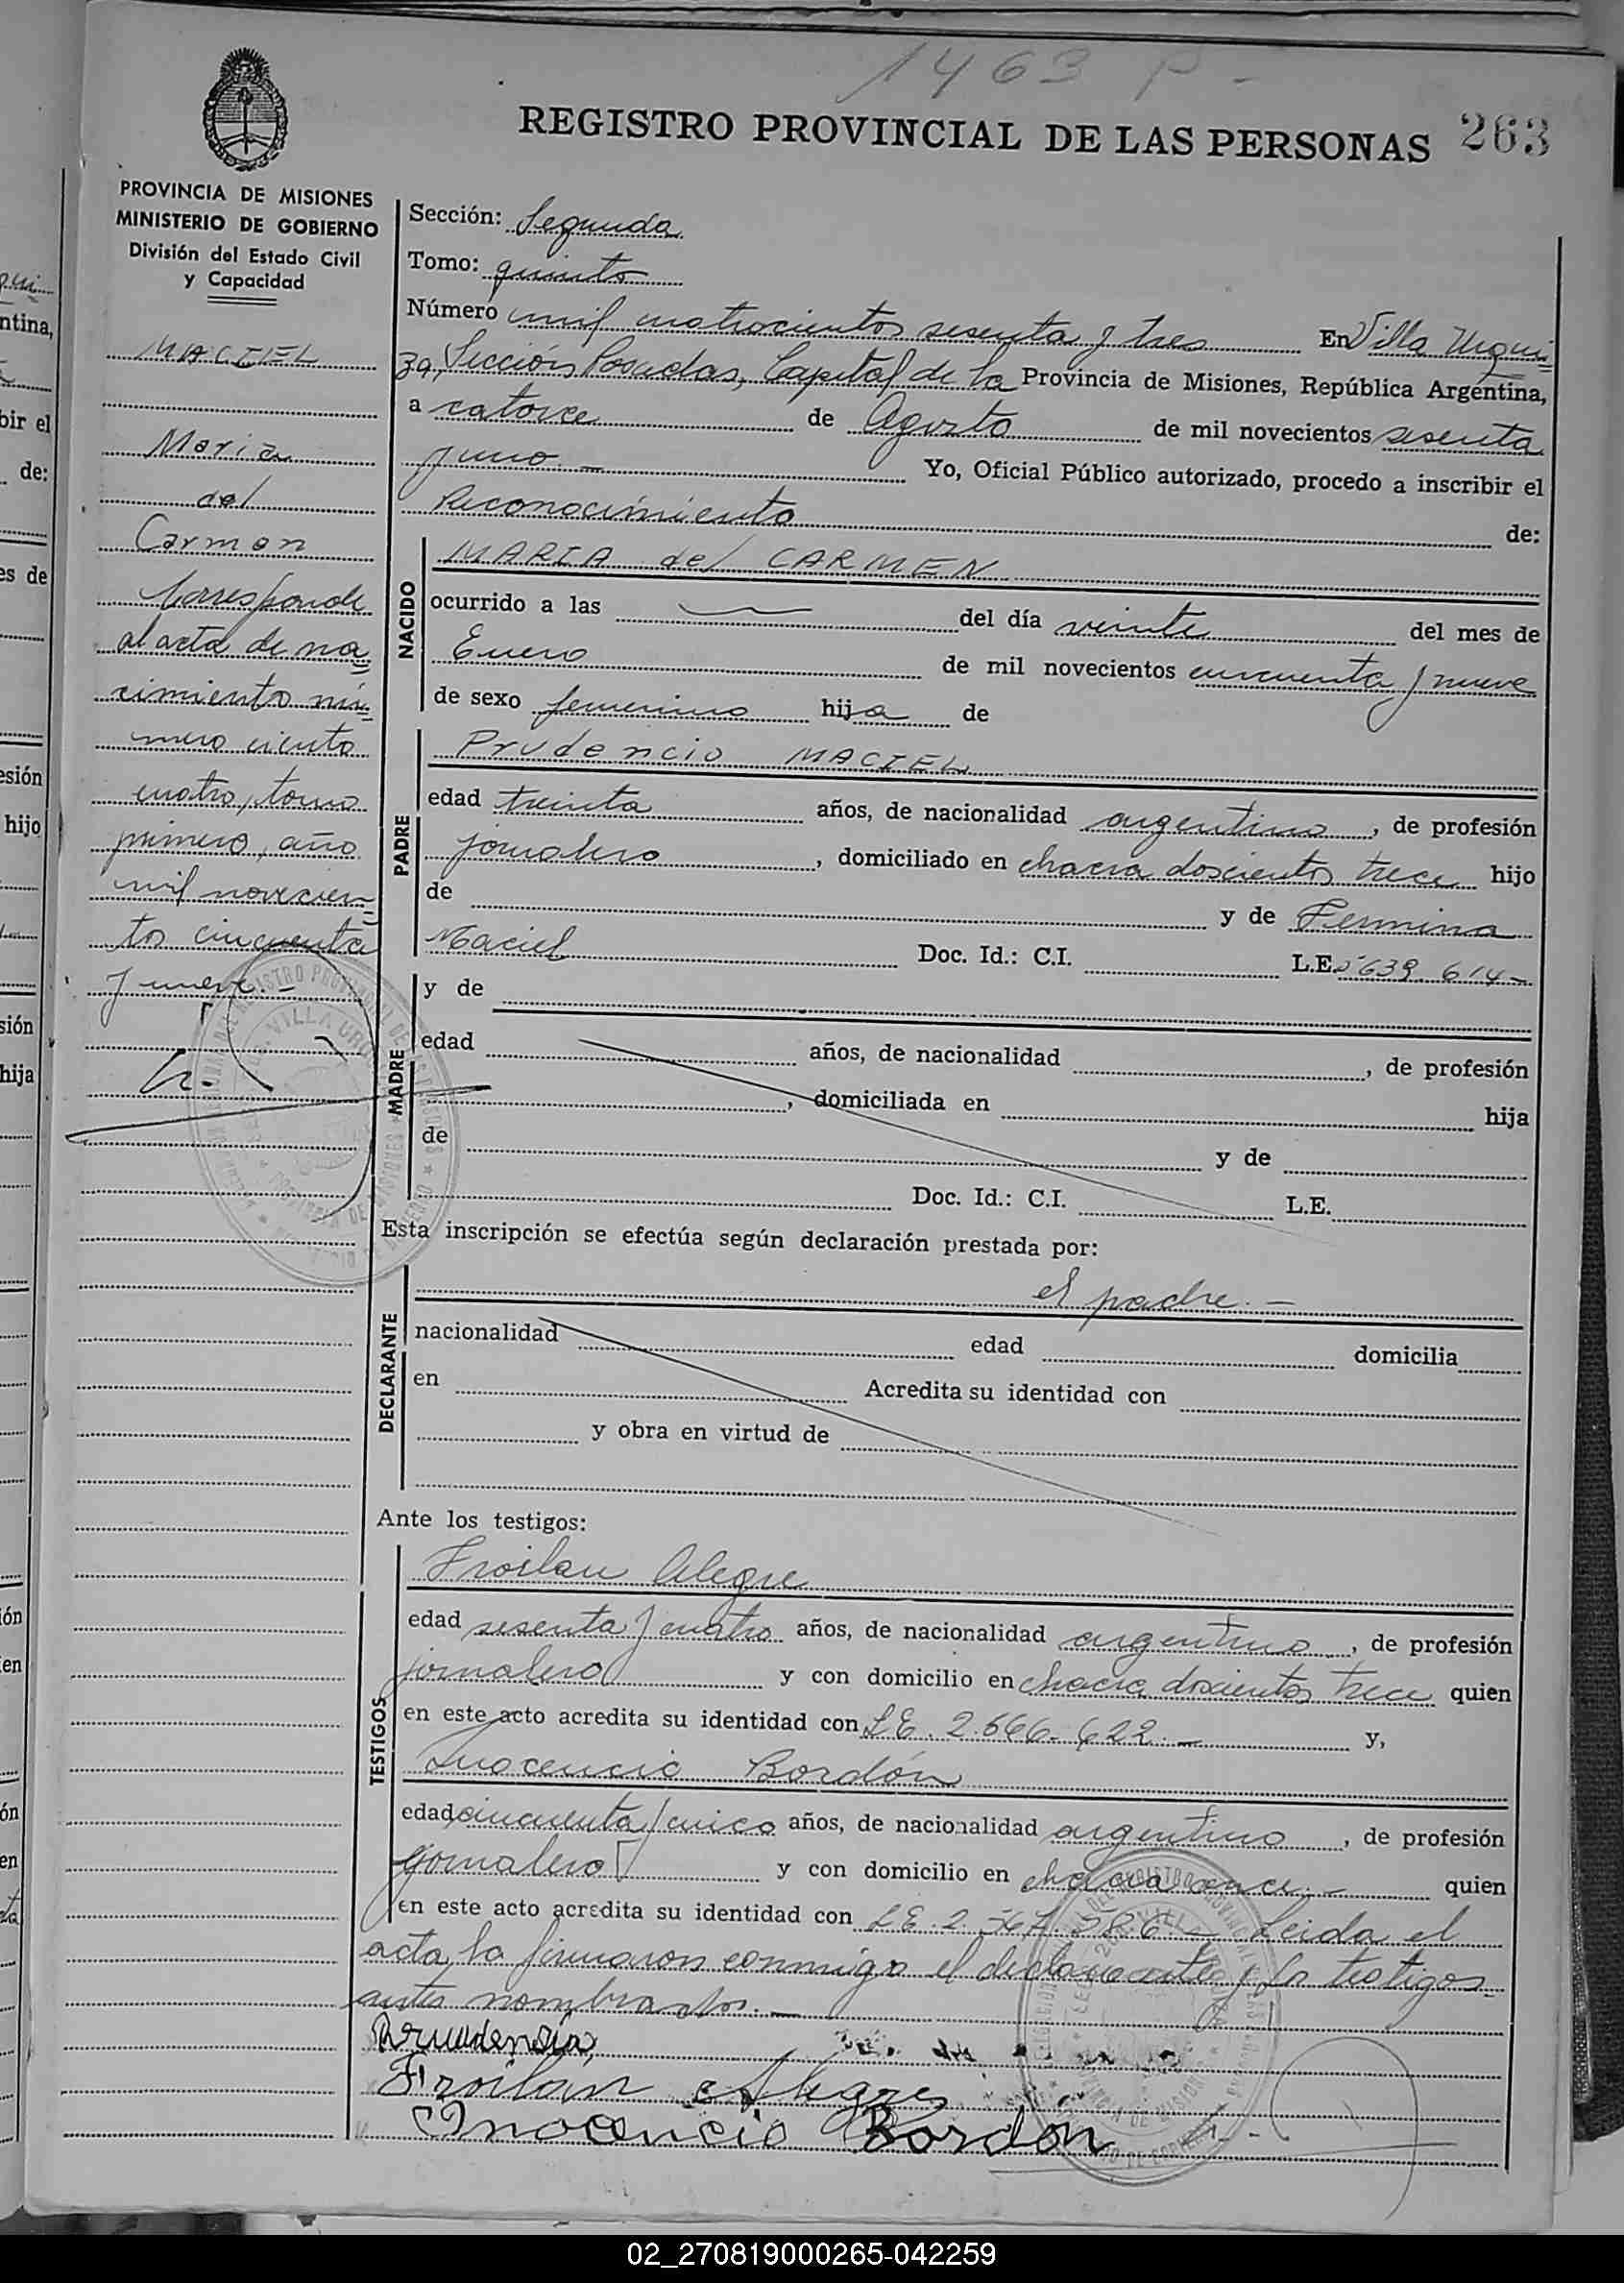 1463 P -
REGISTRO PROVINCIAL DE LAS PERSONAS 263
PROVINCIA DE MISIONES
MINISTERIO DE GOBIERNO
División del Estado Civil
y Capacidad
MACIEL
Maria
del
Carmen
Corresponde
al acta de na
cimiento nú
mero ciento
cuatro, tomo
primero, año
mil novecien
tos cincuenta
y nueve.-
Sección: Segunda
Tomo: quinto
Número mil cuatrocientos sesenta y tres En Villa Urqui
za, Sección Posadas, Capital de la Provincia de Misiones, República Argentina,
a catorce de Agosto de mil novecientos sesenta
y uno.- Yo, Oficial Público autorizado, procedo a inscribir el
Reconocimiento de:
NACIDO
MARIA del CARMEN
ocurrido a las del día veinte del mes de
Enero de mil novecientos cincuenta y nueve
de sexo femenino hija de
PADRE
Prudencio MACIEL
edad treinta años, de nacionalidad argentino, de profesión
jornalero, domiciliado en chacra doscientos trece hijo
de y de Fermina
Maciel Doc. Id.: C.I. L.E. 5639.614-
MADRE
y de
edad años, de nacionalidad , de profesión
, domiciliada en hija
de y de
Doc. Id.: C.I. L.E.
Esta inscripción se efectúa según declaración prestada por:
DECLARANTE
el padre.-
nacionalidad edad domicilia
en Acredita su identidad con
y obra en virtud de
Ante los testigos:
TESTIGOS
Froilan Alegre
edad sesenta y cuatro años, de nacionalidad argentino, de profesión
jornalero y con domicilio en chacra doscientos trece quien
en este acto acredita su identidad con L.E. 2.566.622.- y,
Inocencio Bordón
edad cincuenta y cinco años, de nacionalidad argentino, de profesión
jornalero y con domicilio en chacra once.- quien
en este acto acredita su identidad con L.E. 2.567.586.- Leida el
acta, la firmaron conmigo el declarante y los testigos
antes nombrados.-
Froilan Alegre
Inocencio Bordón
02_270819000265-042259